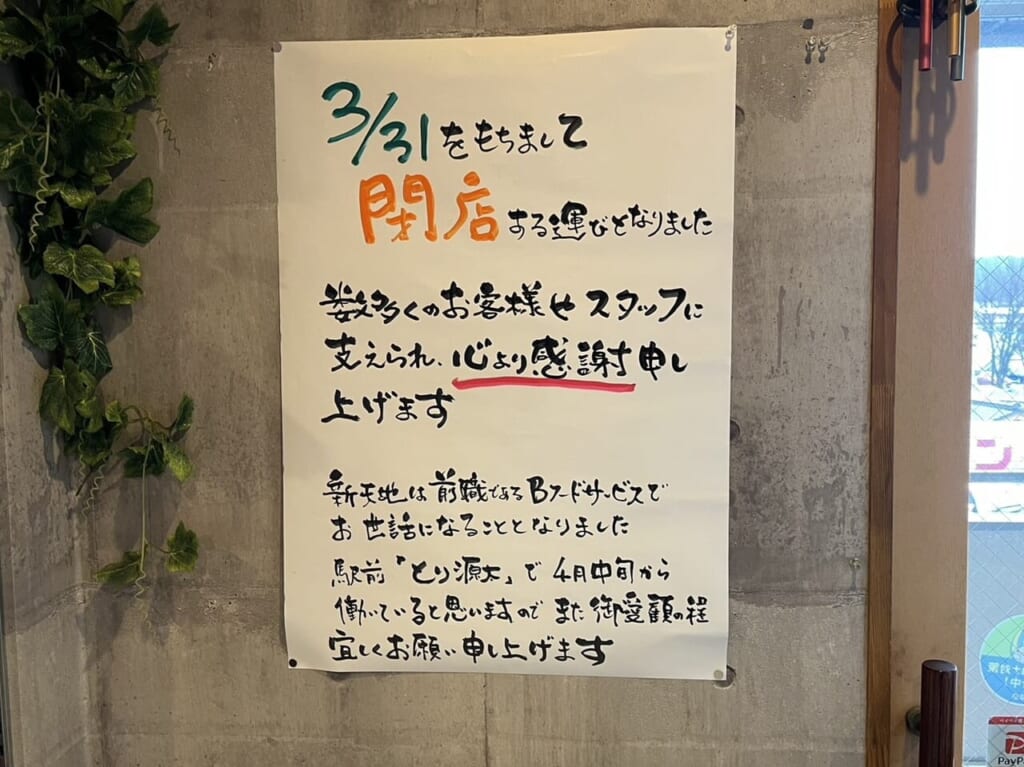 3/31をもちまして
閉店する運びとなりました
数多くのお客様せスタッフに
支えられ、心より感謝申し
上げます
新天地は前職であるBフードサービスで
お世話になることとなりました
駅前「とり源太」で4月中旬から
働いていると思いますのでまた御愛顧の程
宜しくお願い申し上げます
ン
PayP